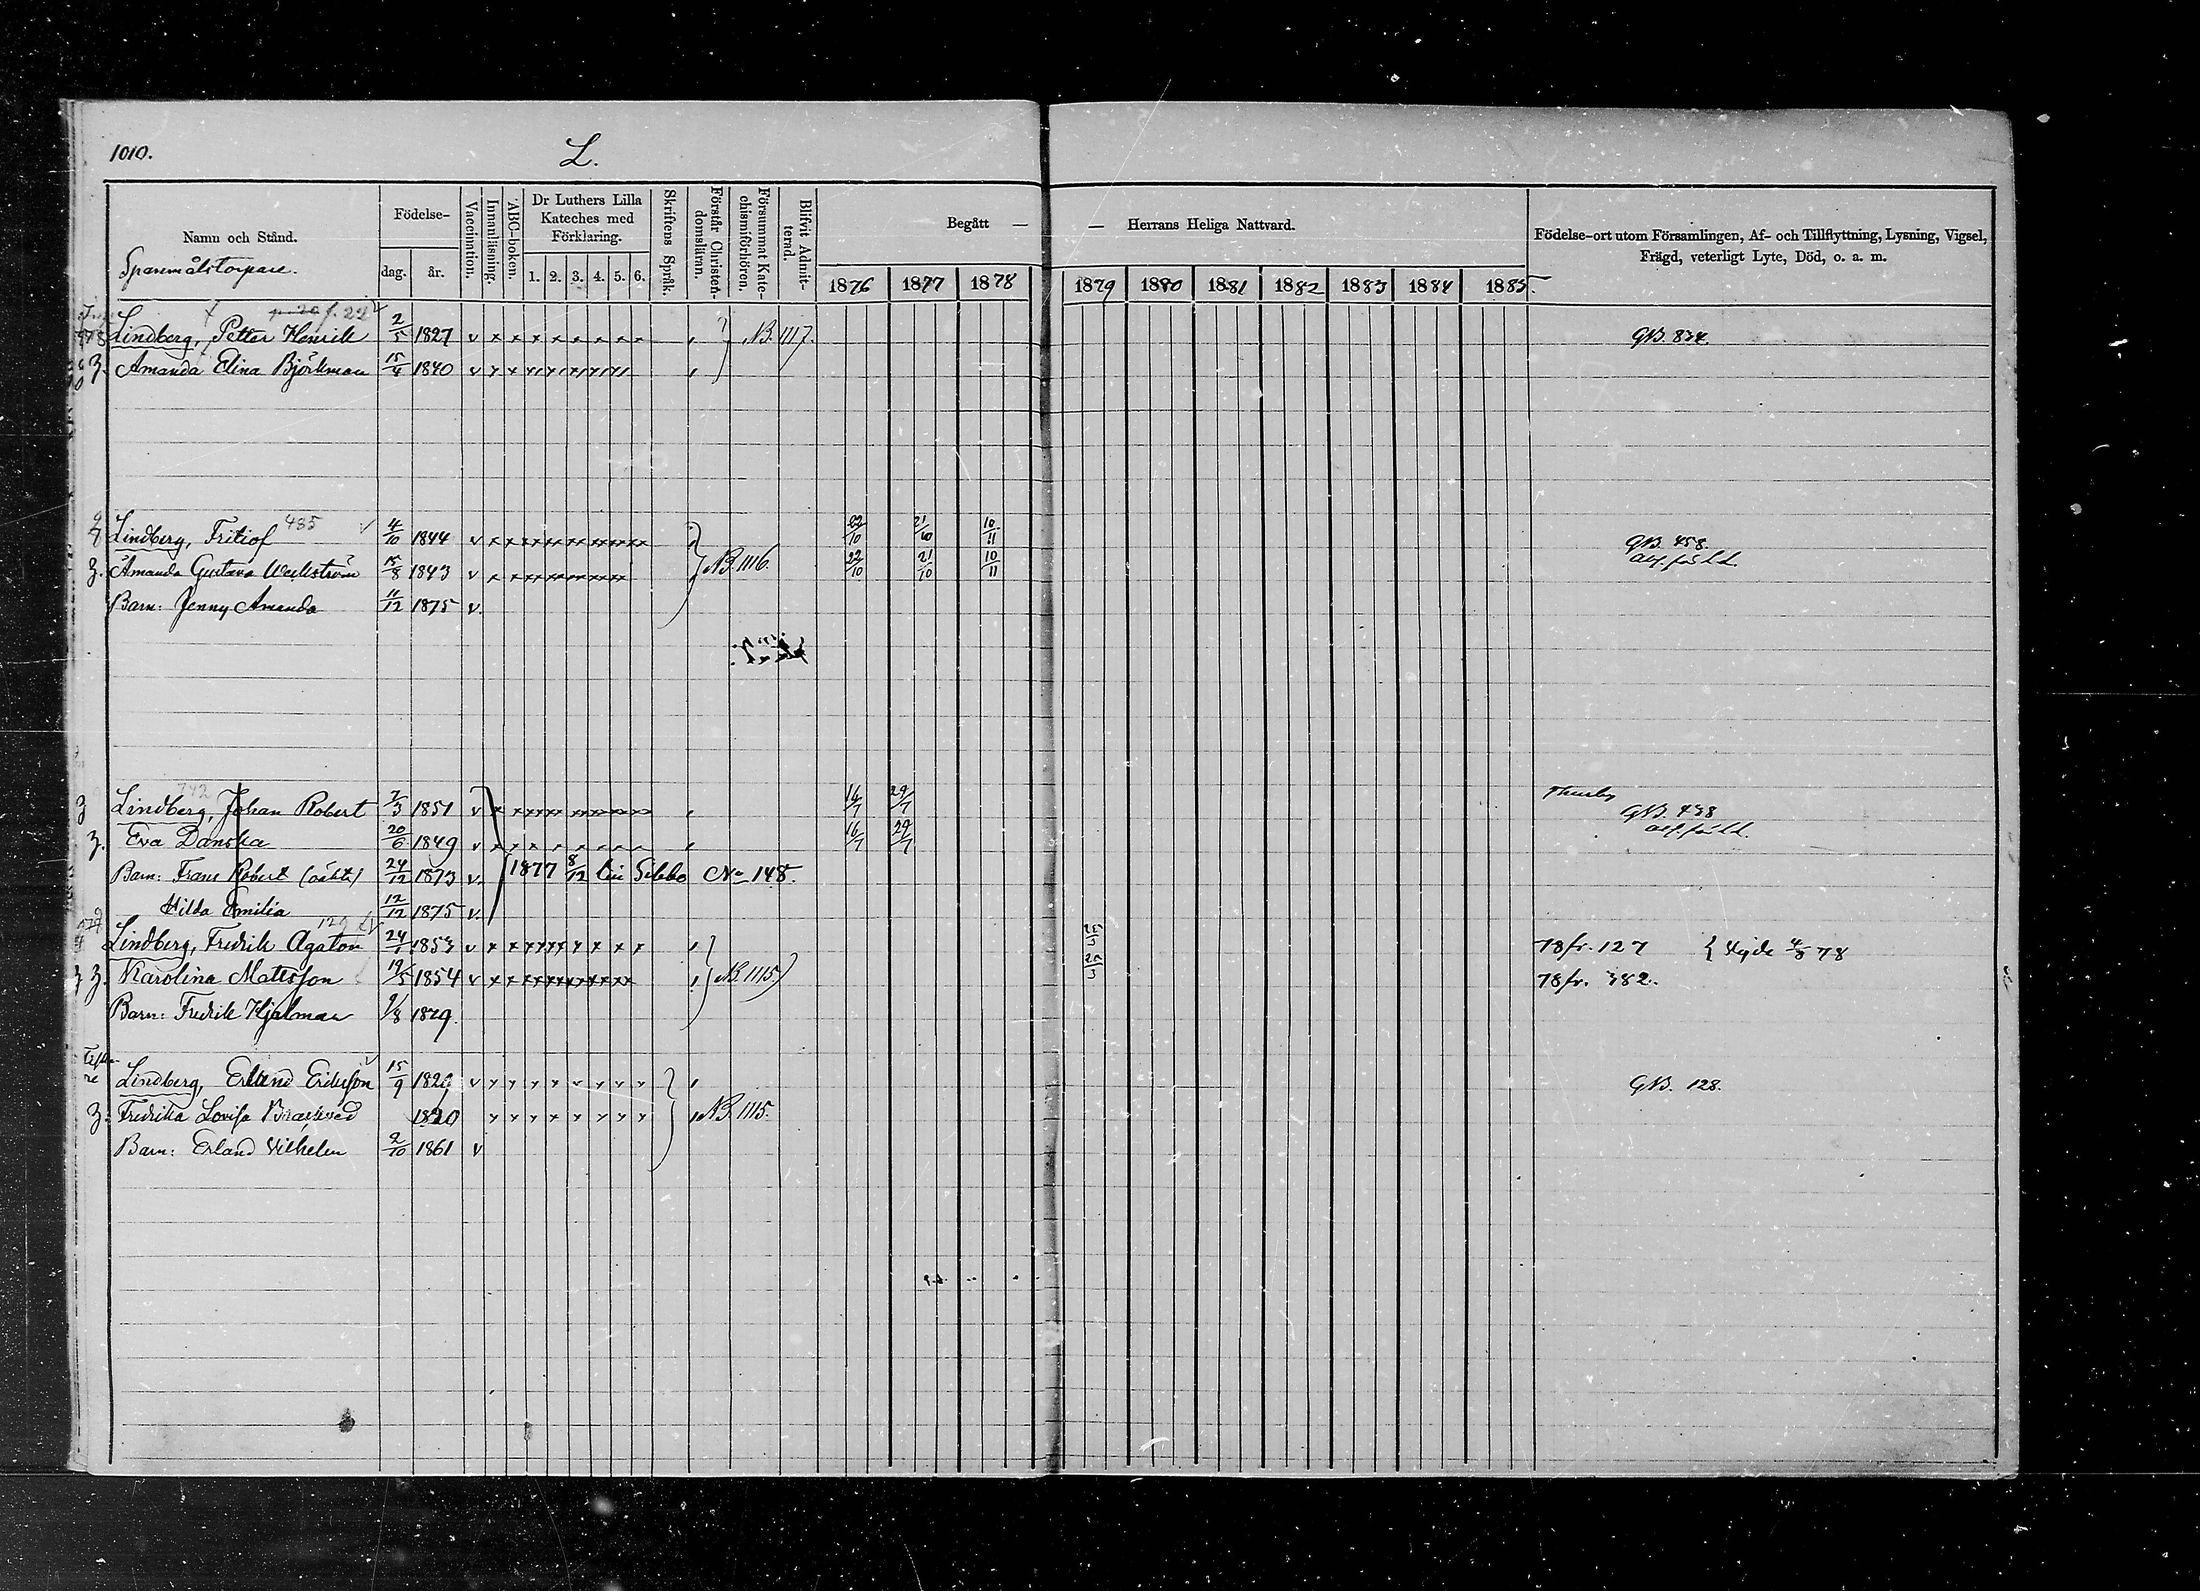 1010.
L.
Namn och Stånd.
Födelse-
dag.
år.
Vaccination.
Innanläsning.
ABC-boken.
Dr Luthers Lilla
Kateches med
Förklaring.
1. 2. 3. 4. 5. 6.
Skriftens Språk.
Förstår Christen-
domsläran.
Försummat Kate-
chismiförhören.
Blifvit Admit-
terad.
Begått —
— Herrans Heliga Nattvard.
1876 1877 1878 1879 1880 1881 1882 1883 1884 1885
Födelse-ort utom Församlingen, Af- och Tillflyttning, Lysning, Vigsel,
Frägd, veterligt Lyte, Död, o. a. m.
Lindberg, Petter Henrik 2/5 1827 NB. 1117. GB. 834.
Amanda Elina Björkman 15/4 1840
485
Lindberg, Fritiof 4/10 1844 22/10 21/10 10/11 GB. 458.
Amanda Gustava Weckström 15/8 1843 NB. 1116. 22/10 21/10 10/11
Barn: Jenny Amanda 11/12 1875 v.
742
Lindberg, Johan Robert 2/3 1851 16/7 29/7 Thusby GB. 438
Eva Danska 20/6 1849 16/7 29/7
Barn: Frans Robert (oäkta) 24/12 1873 v. 1877 8/12 till Sibbo No 148.
Hilda Emilia 12/12 1875 v.
Lindberg, Fredrik Agaton 24/1 1853 25/3 78 fr. 127 78
Karolina Matsson 19/5 1854 NB. 1115 25/3 78 fr. 382.
Barn: Fredrik Hjalmar 9/8 1879.
Lindberg, Erland Eriksson 15/9 1829 GB. 128.
Fredrika Lovisa 1820 NB. 1115.
Barn: Erland Vilhelm 2/10 1861 v